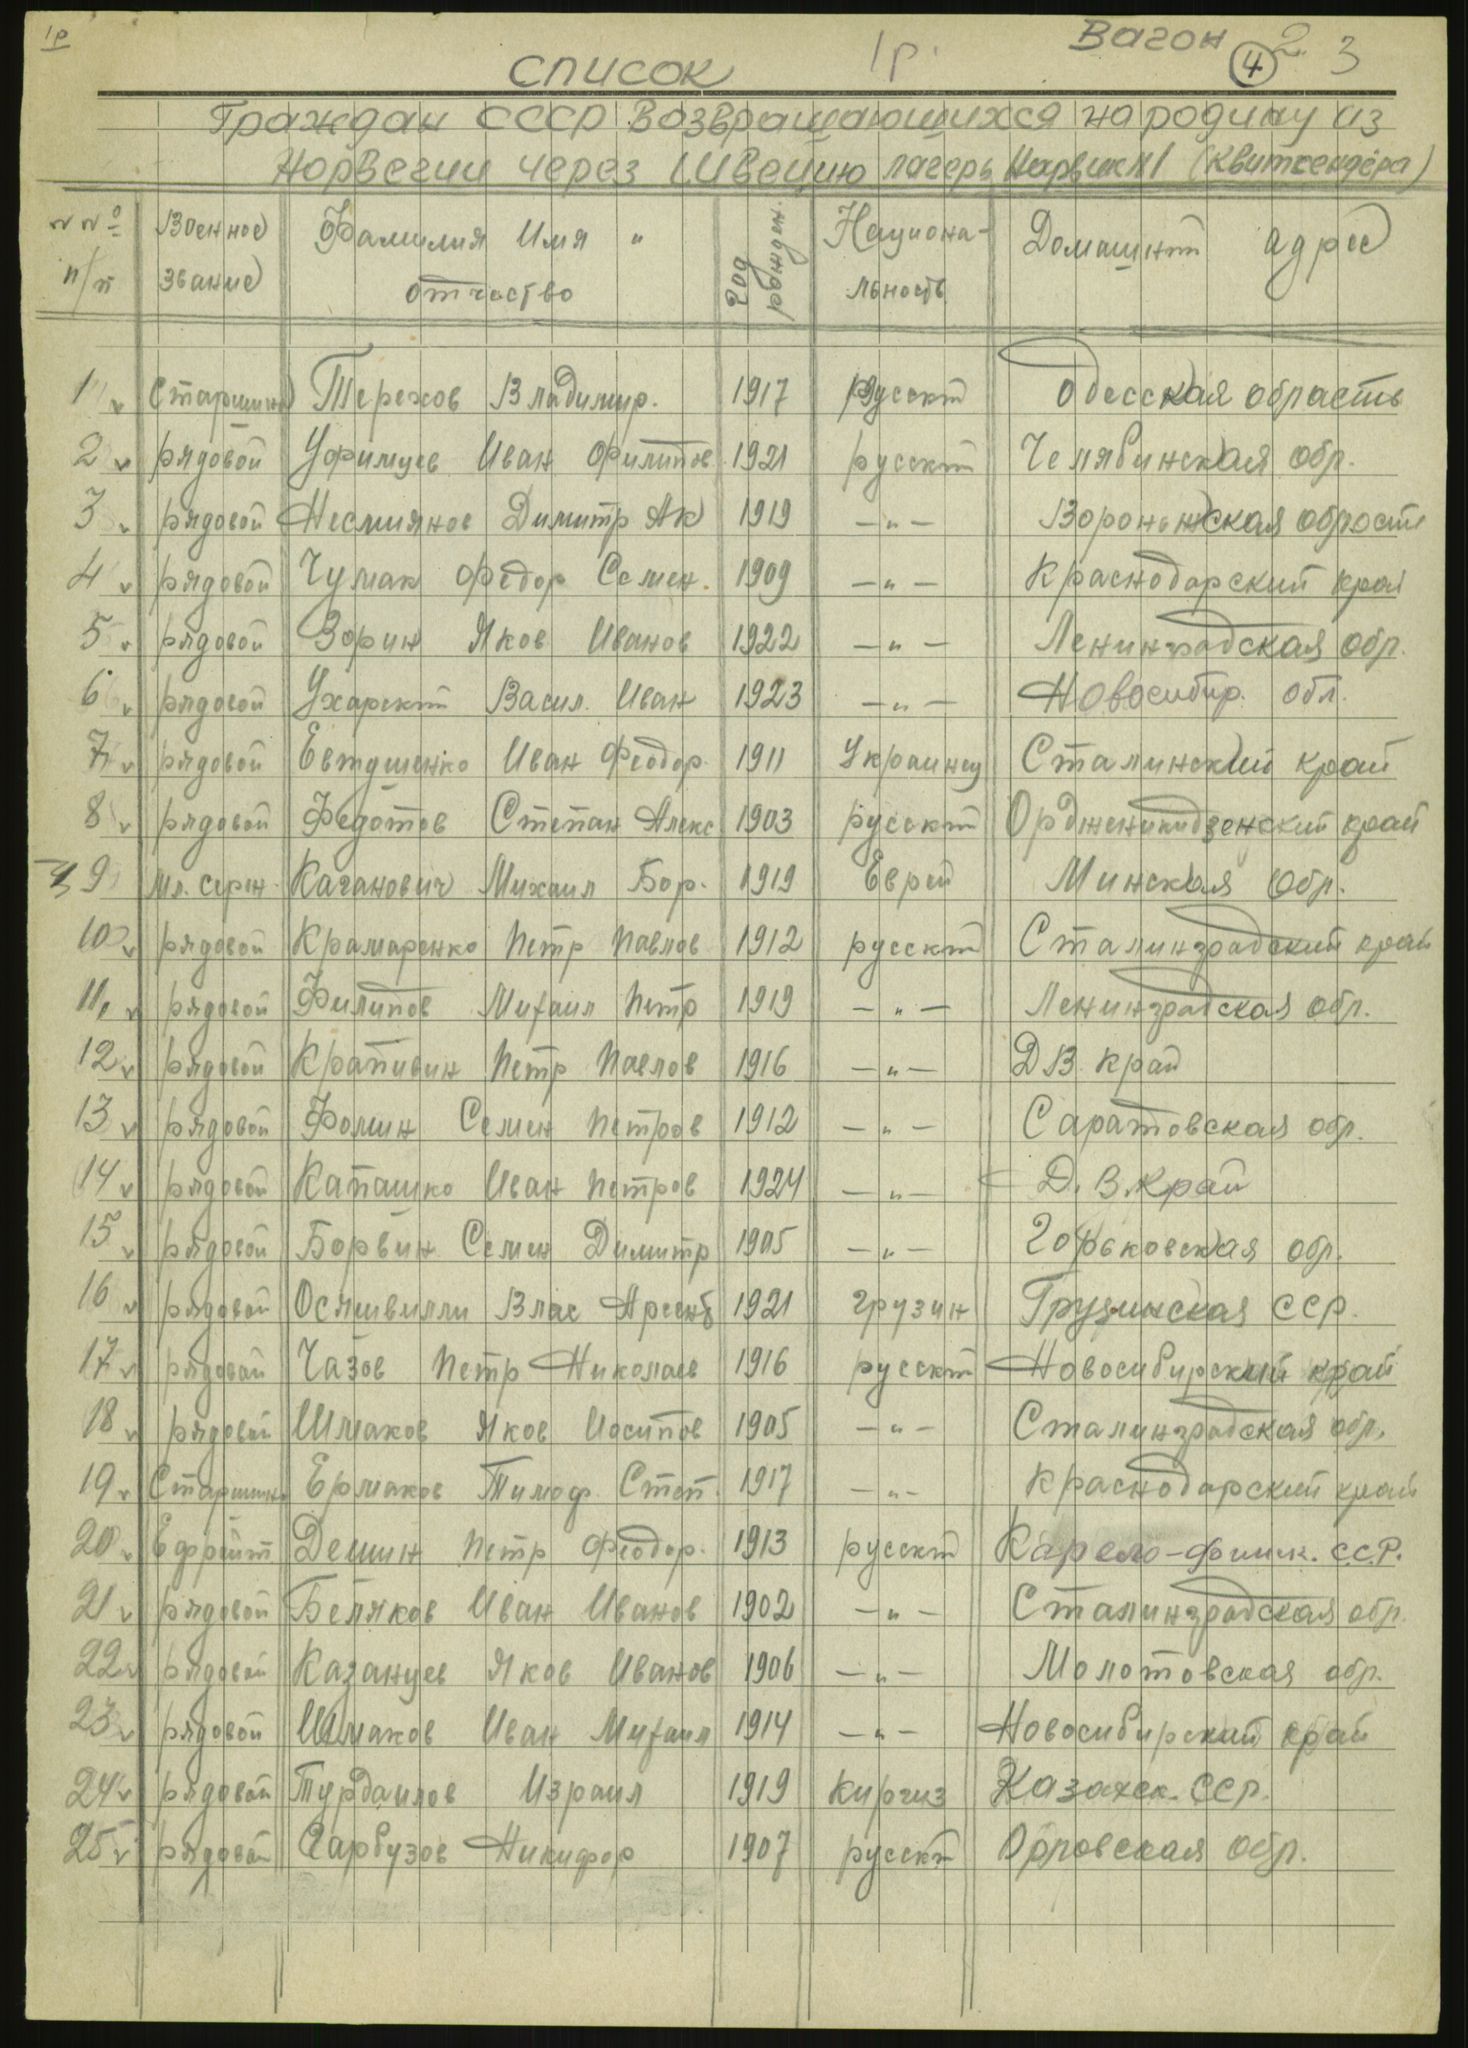 1р
Вагон 2 3
4
1р.
список
Граждан СССР возвращающихся на родину из
Норвегии через Швецию лагерь Нарвик №1 (Квиткендёра)
№№ п/п Военное звание Фамилия Имя " отчество Год рожден. Национальность Домашний адрес
1 v Старшина Терехов Владимир. 1917 Русский Одесская область
2 v рядовой Уфимцев Иван Филипов 1921 русский Челябинская обр.
3 v рядовой Несмиянов Димитр Ак 1919 — " — Вороньжская область
4 v рядовой Чумак Федор Семен. 1909 — " — Краснодарский край
5 v рядовой Зорин Яков Иванов 1922 — " — Ленинградская обр.
6 v рядовой Ухарский Васил. Иван 1923 — " — Новосибир. обл.
7 v рядовой Евтушенко Иван Феодор. 1911 Украинец Сталинский край
8 v рядовой Федотов Степан Алекс 1903 русский Ордженикидзенский край
9 мл. серж. Каганович Михаил Бор. 1919 Еврей Минская обр.
10 v рядовой Крамаренко Петр Павлов 1912 русский Сталинградский край
11, v рядовой Филипов Михаил Петр 1919 — " — Ленинградская обр.
12 v рядовой Крапивин Петр Павлов 1916 — " — ДВ. край
13 v рядовой Фомин Семен Петров 1912 — " — Саратовская обр.
14 v рядовой Капашко Иван Петров 1924 — " — Д. В. Край
15 v рядовой Борвин Семен Димитр 1905 — " — Горьковская обр.
16 v рядовой Осяшвилли Влас Арсень 1921 грузин Грузинская ССР.
17 v рядовой Чазов Петр Николаев 1916 русский Новосибирский край
18 v рядовой Шмаков Яков Иосипов 1905 — " — Сталинградская обр.
19 v Старшина Ермаков Тимоф. Степ. 1917 — " — Краснодарский край
20 v Ефрейт Демин Петр Феодор. 1913 русский Карело-финк. С.С.Р.
21 v рядовой Беляков Иван Иванов 1902 — " — Сталинградская обр.
22 v рядовой Казанцев Яков Иванов 1906 — " — Молотовская обр.
23 v рядовой Шмаков Иван Михаил 1914 — " — Новосибирский край
24 v рядовой Турдаилов Израил 1919 Киргиз Казахск. ССР.
25 v рядовой Гарбузов Никифор 1907 русский Орловская обр.